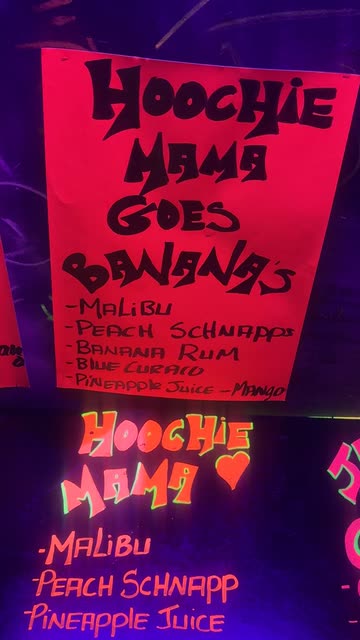 HOOCHIE
MAMA
GOES
BANANA'S
-MALIBU
-PEACH SCHNAPPS
-BANANA RUM
-BLUE CURACO
-PINEAPPLE JUICE -MANGO
HOOCHIE
MAMA
-MALIBU
-PEACH SCHNAPP
PINEAPPLE JUICE